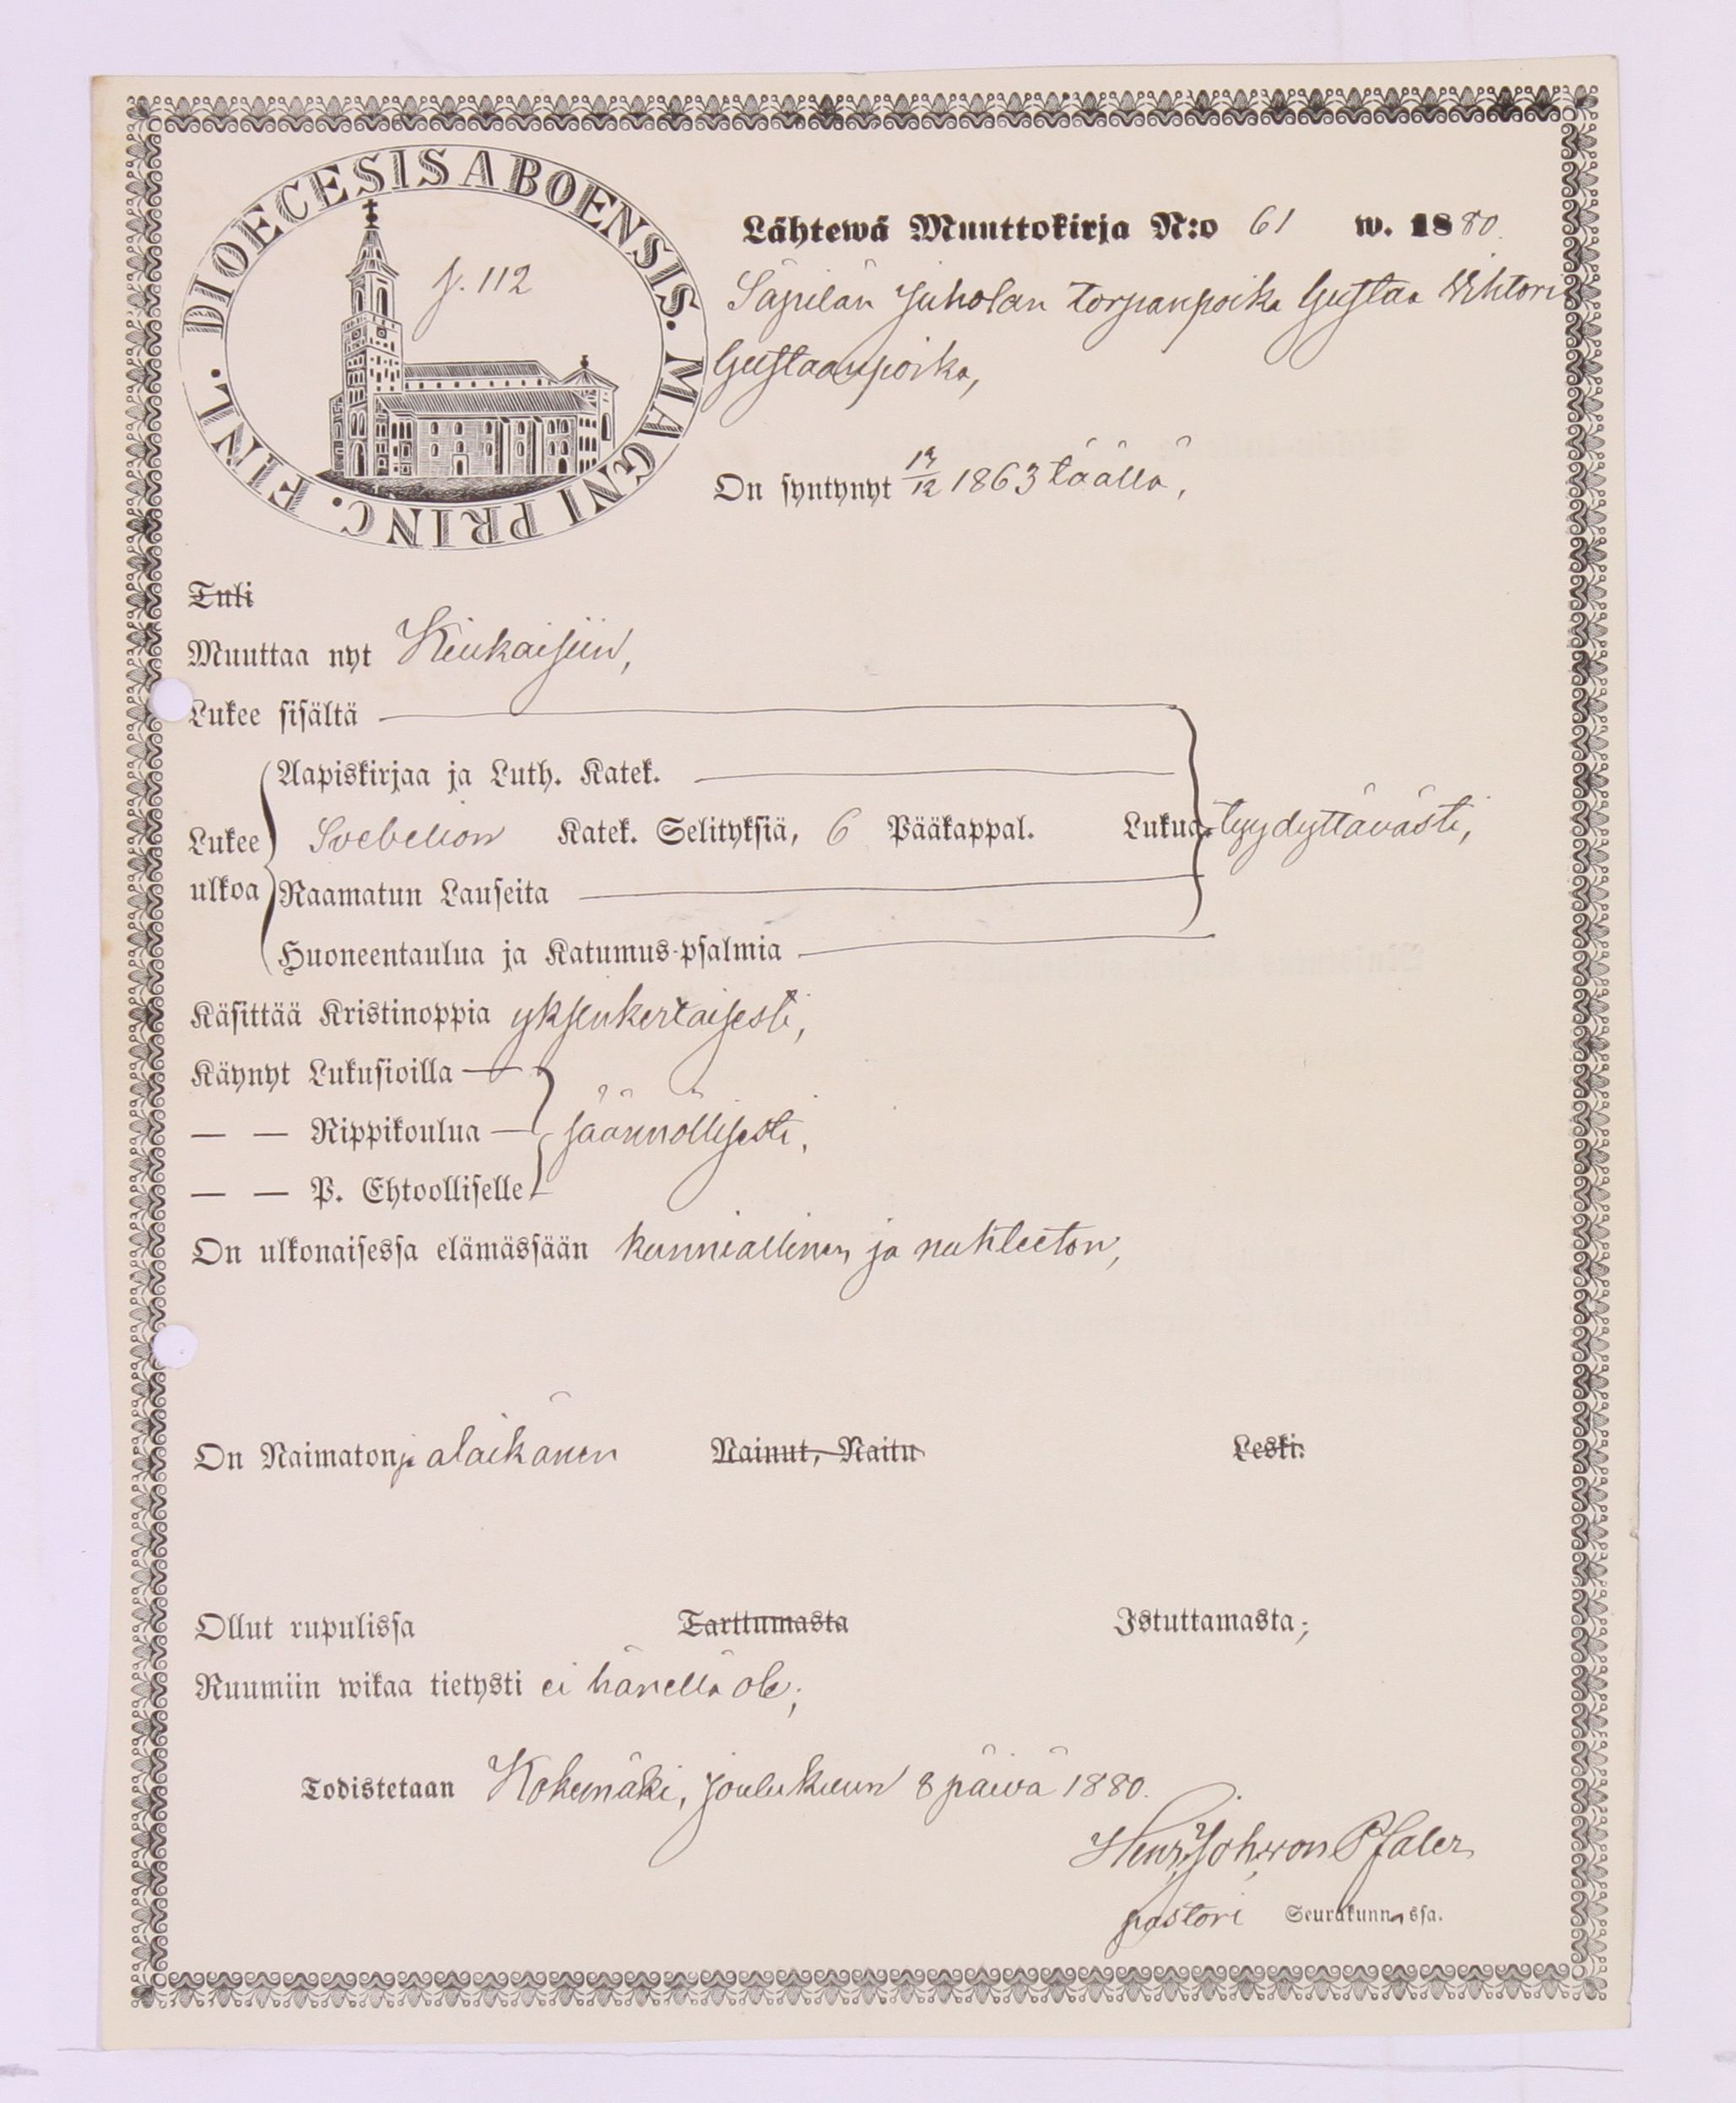 DIOECESIS ABOENSIS. MAGNI PRINC. FINL.
p. 112
Lähtewä Muuttokirja N:o 61 w. 1880.
Säpilän Juholan torpanpoika Gustaa Vihtori
Gustaanpoika,
On syntynyt 19/12 1863 täällä,
Tuli
Muuttaa nyt Kiukaisiin,
Lukee sisältä
Aapiskirjaa ja Luth. Katek.
Lukee ulkoa Svebelion Katek. Selityksiä, 6 Pääkappal. Lukua tyydyttävästi,
Raamatun Lauseita
Huoneentaulua ja Katumus-psalmia
Käsittää Kristinoppia yksinkertaisesti,
Käynyt Lukusioilla
— — Rippikoulua säännöllisesti.
— — P. Ehtoolliselle
On ulkonaisessa elämässään kunniallinen ja nuhteeton,
On Naimaton ja alaikänen Nainut, Naitu Leski.
Ollut rupulissa Tarttumasta Istuttamasta;
Ruumiin wikaa tietysti ei hänellä ole;
Todistetaan Kokemäki, Joulukuun 8 päivä 1880.
Henr. Joh. von Pfaler
pastori Seurakunnassa.